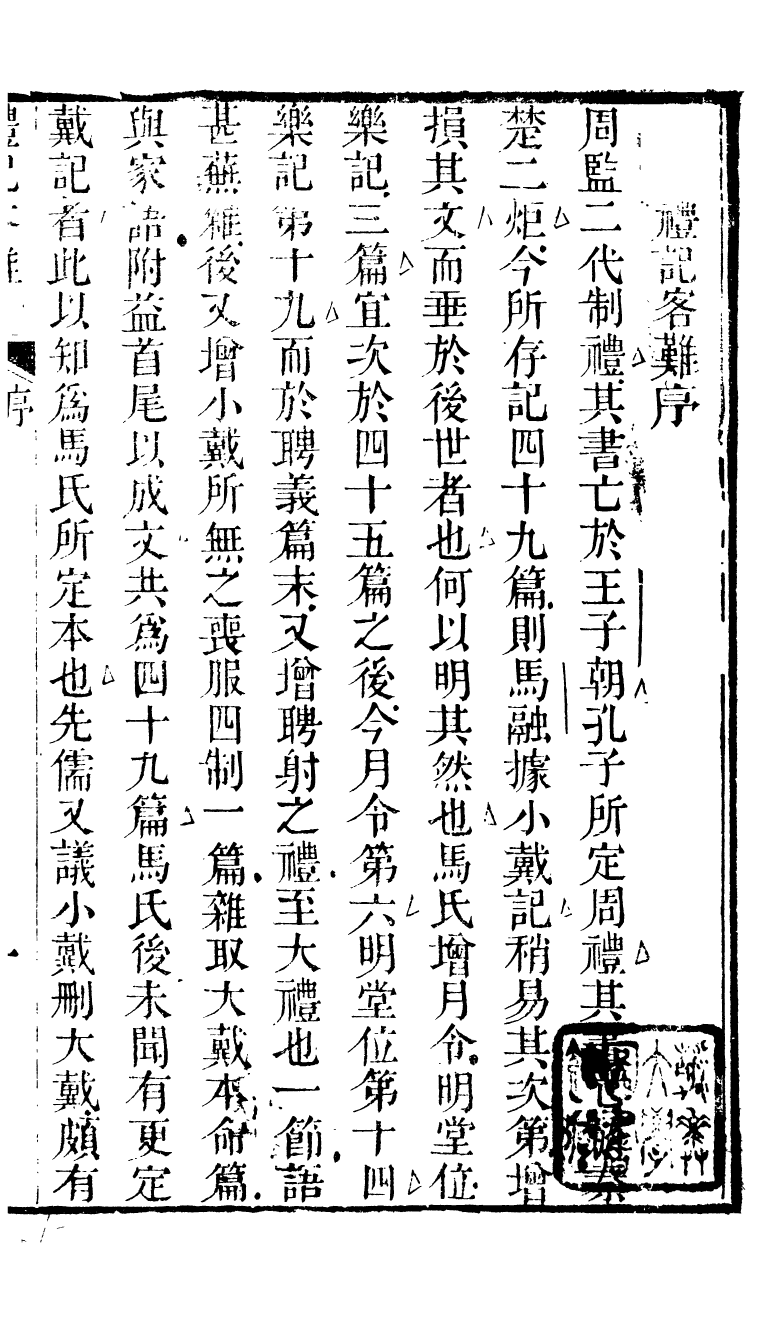 禮記客難序
周監二代制禮其書亡於王子朝孔子所定周禮其書亡於秦
楚二炬今所存記四十九篇則馬融據小戴記稍易其次第增
損其文而垂於後世者也何以明其然也馬氏增月令明堂位
樂記三篇宜次於四十五篇之後今月令第六明堂位第十四
樂記第十九而於聘義篇末又增聘射之禮至大禮也一節語
甚蕪雜後又增小戴所無之喪服四制一篇雜取大戴本命篇
與家語附益首尾以成文共爲四十九篇馬氏後未聞有更定
戴記者此以知爲馬氏所定本也先儒又議小戴刪大戴頗有
序